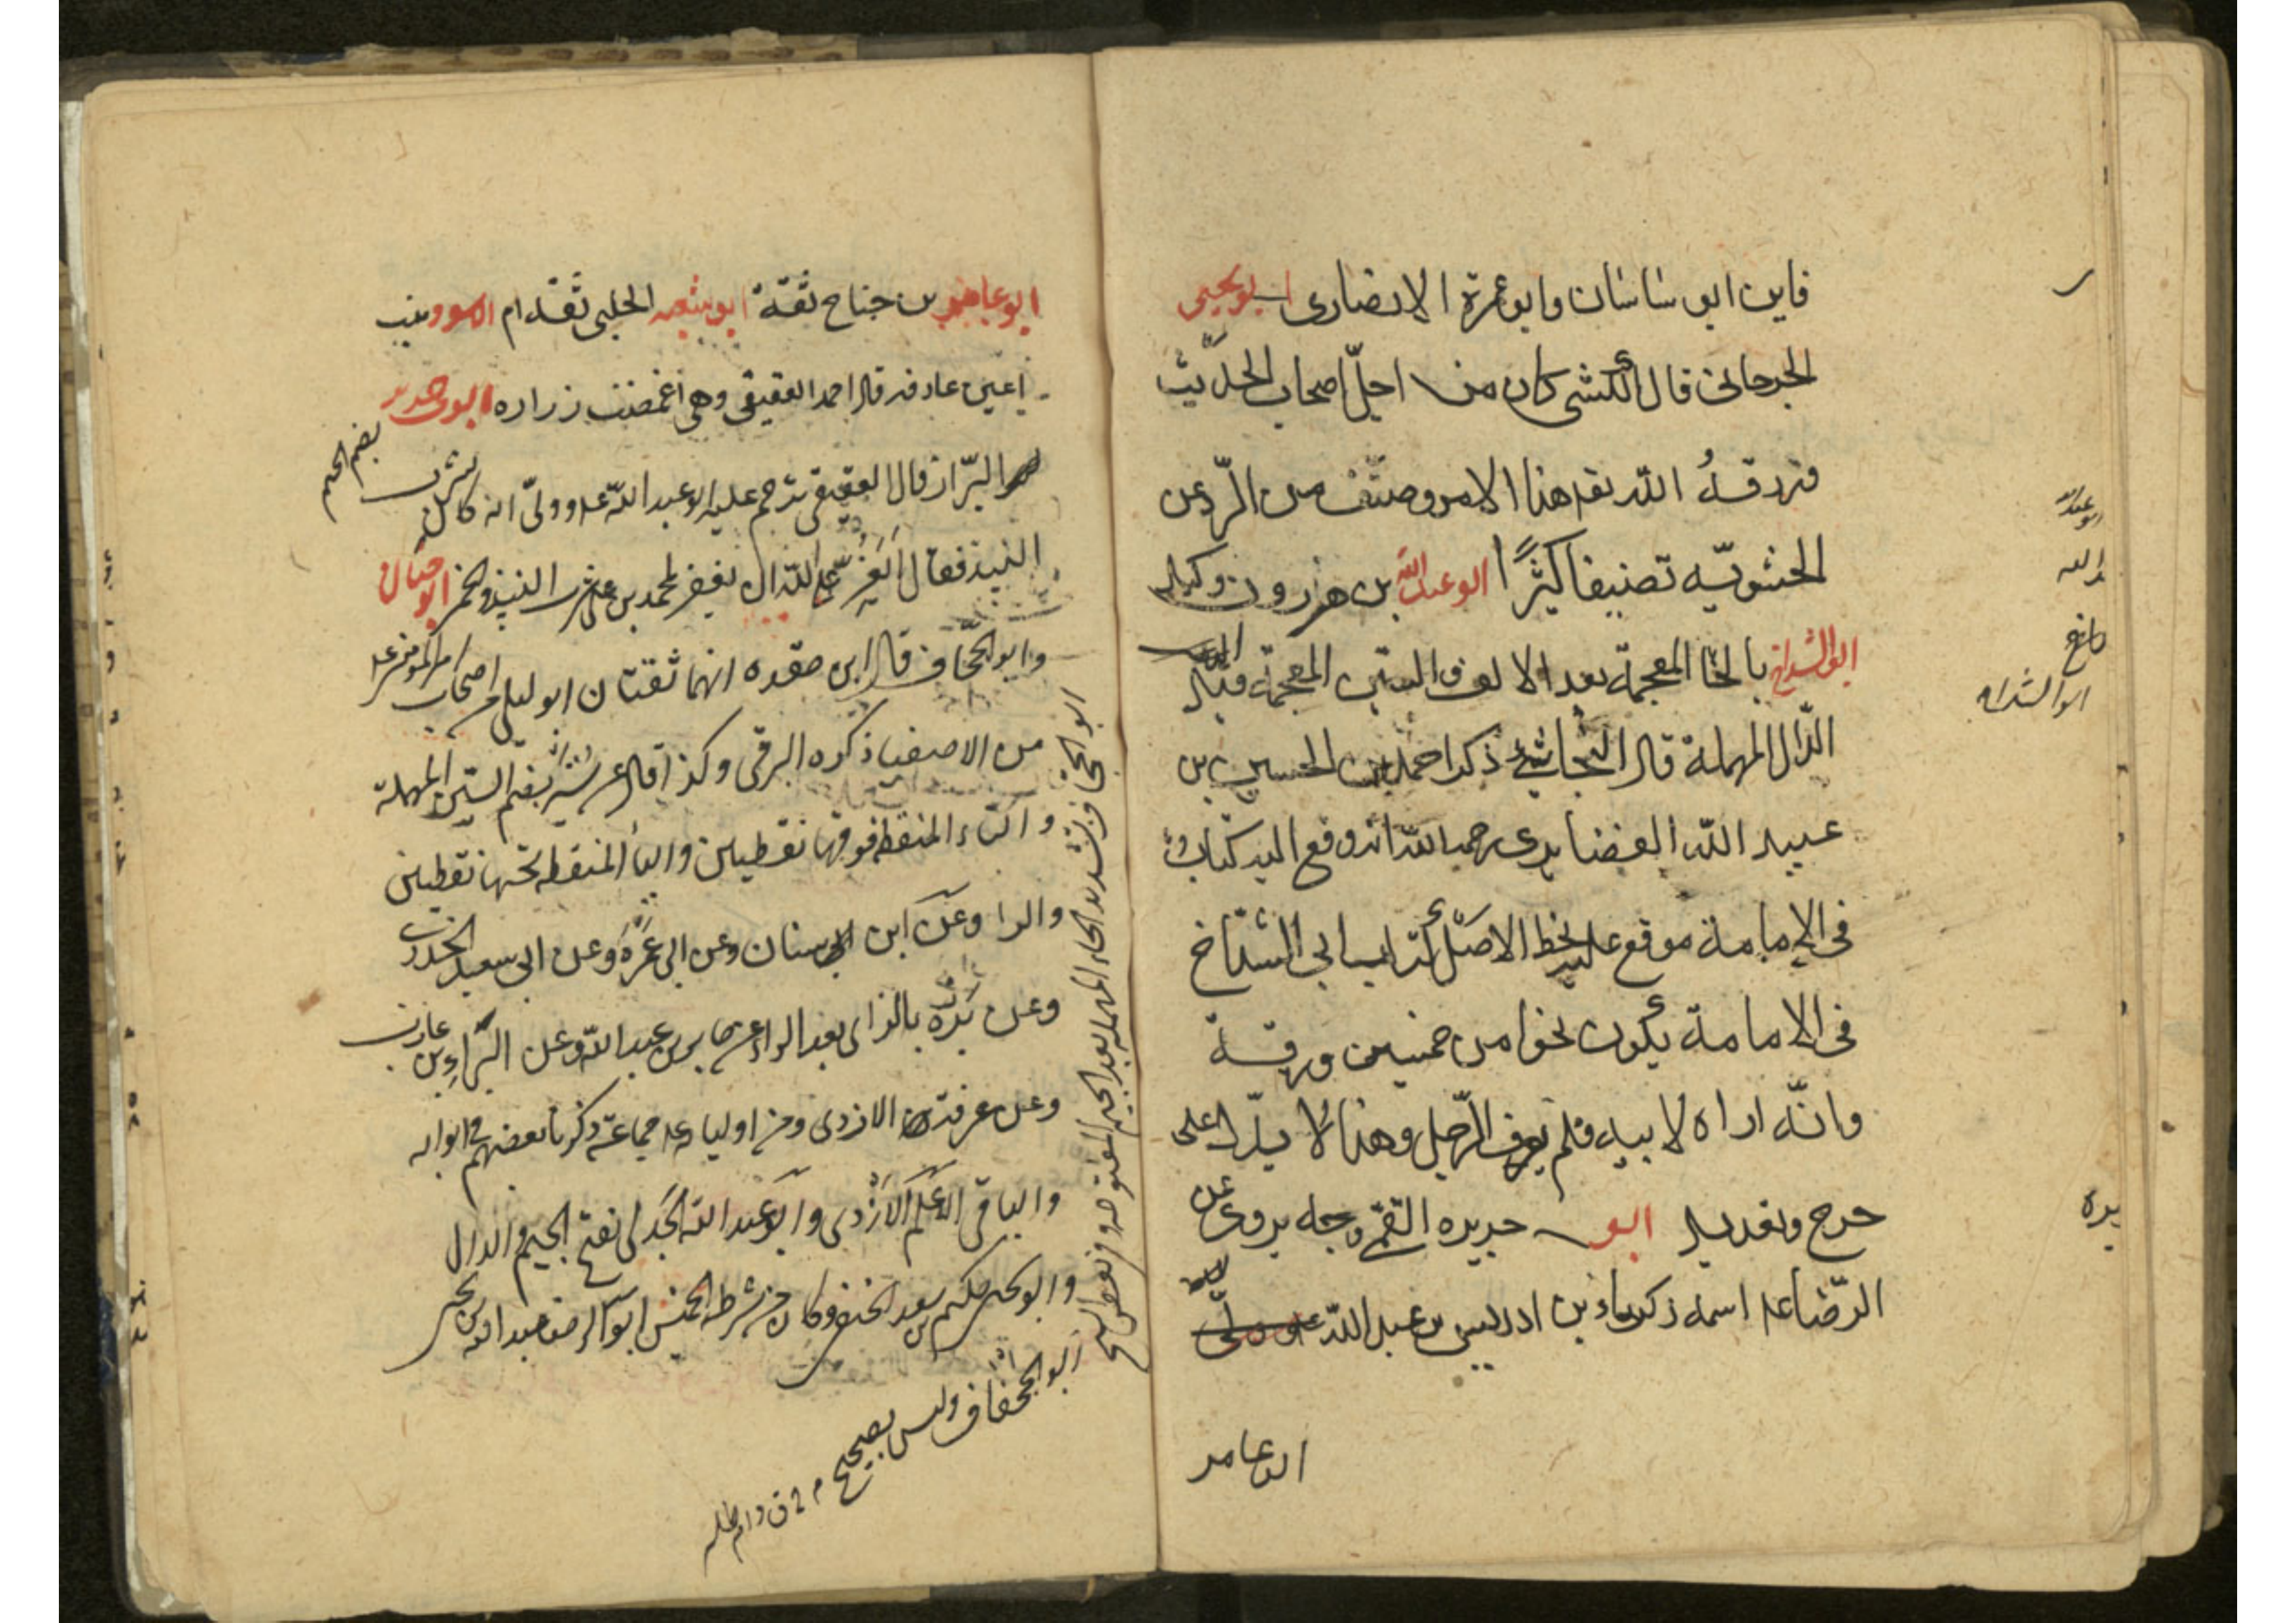 فاين ابو ساسان وابو عمرة الانصارى ابو يحيى
الجرجانى قال الكشى كان من اجلّ اصحاب الحديث
فرزقه الله تعـ هذا الامر وصنّف من الرّد عن
الحشويّه تصنيفا كثيرًا ابو عبد الله بن هرون وكيل
ابو الشداخ بالخا المعجمة بعد الالف والشين المعجمة قبل
الدّال المهملة قال النجاشى ذكر احمد بن الحسين بن
عبيد الله الغضايرى رحمه الله انه وقع اليه كتاب
فى الامامة موقع عليه بخط الاصل كتاب ابى الشدّاخ
فى الامامة يكون نحوا من خمسين ورقة
وانّه اراه لابيه فلم يعرف الرّجل وهذا لا يدلّ على
جرح وتعديل ابو جرير القمى وجه يروى عن
الرّضا عـ اسمه زكريا بن ادريس بن عبد الله
ابو عامر
ابو الشداخ
ابو عامر بن جناح ثقة ابو شعبه الحلبى ثقه ام الاسود بنت
اعين عارفه قال احمد العقيقى وهى اغمضت زراره ابو
البزّاز قال العقيقى ترحم عليه ابو عبد الله عـ وولىّ انه كان يشرب
النبيذ فقال ايعزّ على الله ان يغفر لمحمد بن على شرب النبيذ والخمر ابو حيان
وابو الجحّاف قال ابن عقده انهما ثقتان ابو ليلى من اصحاب امير المومنين عـ
من الاصفيا ذكره البرقى وكذا قال عن شتير بضم السين المهملة
والتاء المنقطه فوقها نقطين والياء المنقطه تحتها نقطين
والرا وعن ابن سنان وعن ابى عمرة وعن ابى سعيد الخدرى
وعن برزه بالزاى بعد الرا وعن جابر بن عبد الله وعن البراء بن عازب
وعن عرفة الازدى ومن اولياء عـ جماعة ذكرنا بعضهم فى ابوابه
والباقى الاعلم الازدى وابو عبد الله الجدلى بفتح الجيم والدال
وابو يحيى حكيم بن سعد الحنفى وكان من شرطه الخميس ابو الرضا عبد الله بن يحيى
بضم الجيم
ابو الجحاف بتشديد الحاء المهمله بعد الجيم المفتوحه وفى بعض النسخ
ابو الجحفاف وليس بصحيح